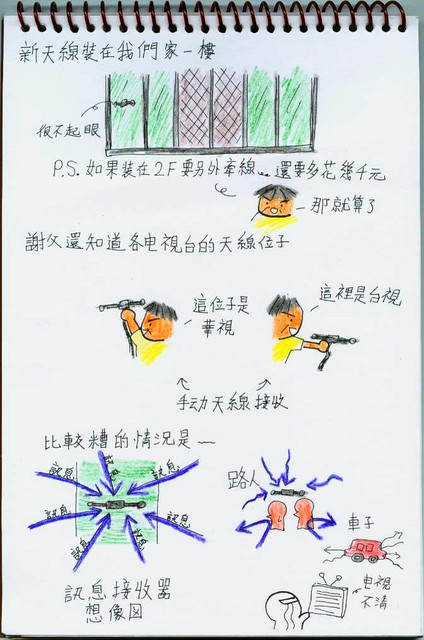 新天線裝在我們家一樓
很不起眼
P.S. 如果裝在2F要另外牽線... 還要多花幾千元
那就算了
謝父還知道各电視台的天線位子
這位子是
華視
這裡是台視
手动天線接收
比較糟的情況是~
訊息
訊息
訊息
訊息
訊息
訊息
訊息
訊息
訊息接收器
想像図
路人
車子
电視
不清